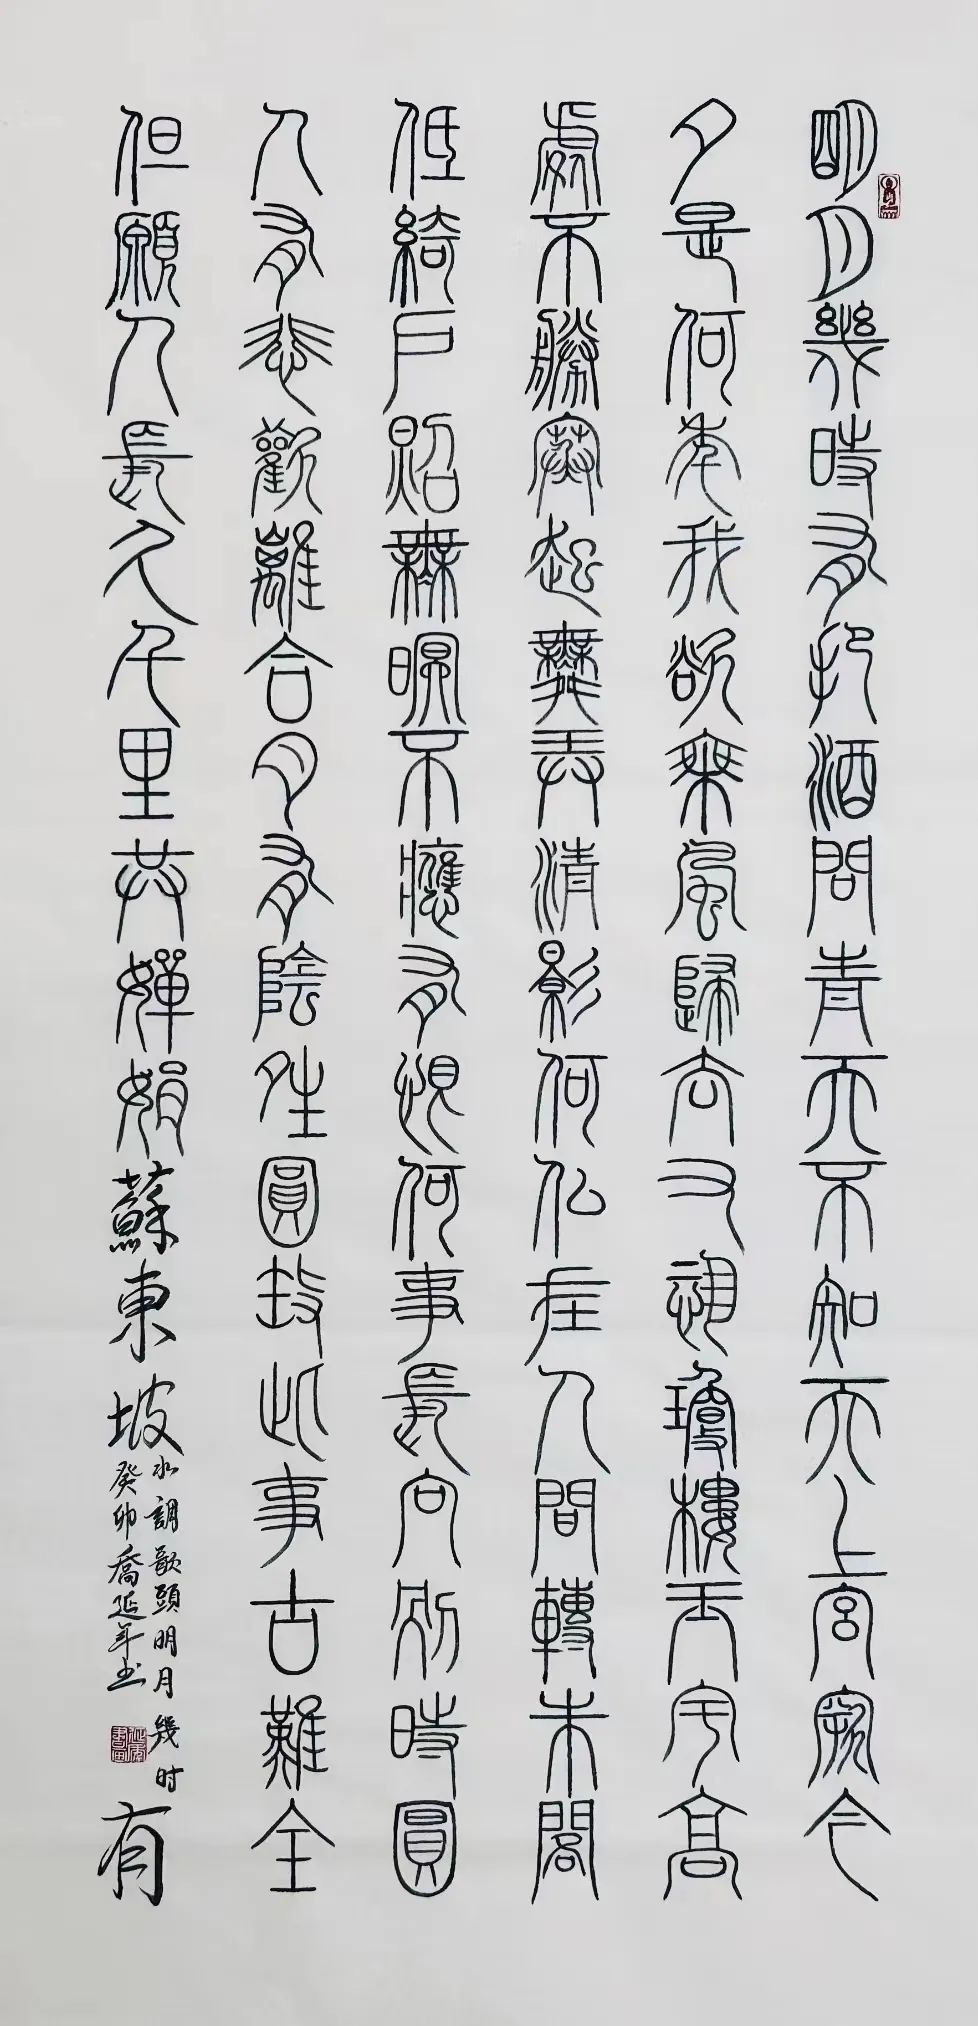 明月幾時有把酒問青天不知天上宮闕今
夕是何年我欲乘風歸去又恐瓊樓玉宇高
處不勝寒起舞弄清影何似在人間轉朱閣
低綺戶照無眠不應有恨何事長向別時圓
人有悲歡離合月有陰晴圓缺此事古難全
但願人長久千里共嬋娟蘇東坡
水調歌頭明月幾时有
癸卯喬延年书
延年書畫